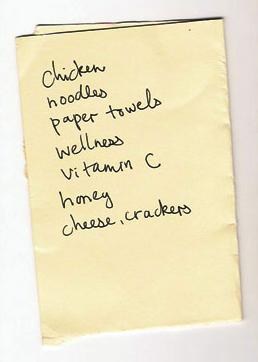 chicken
noodles
paper towels
wellness
vitamin C
honey
cheese, crackers